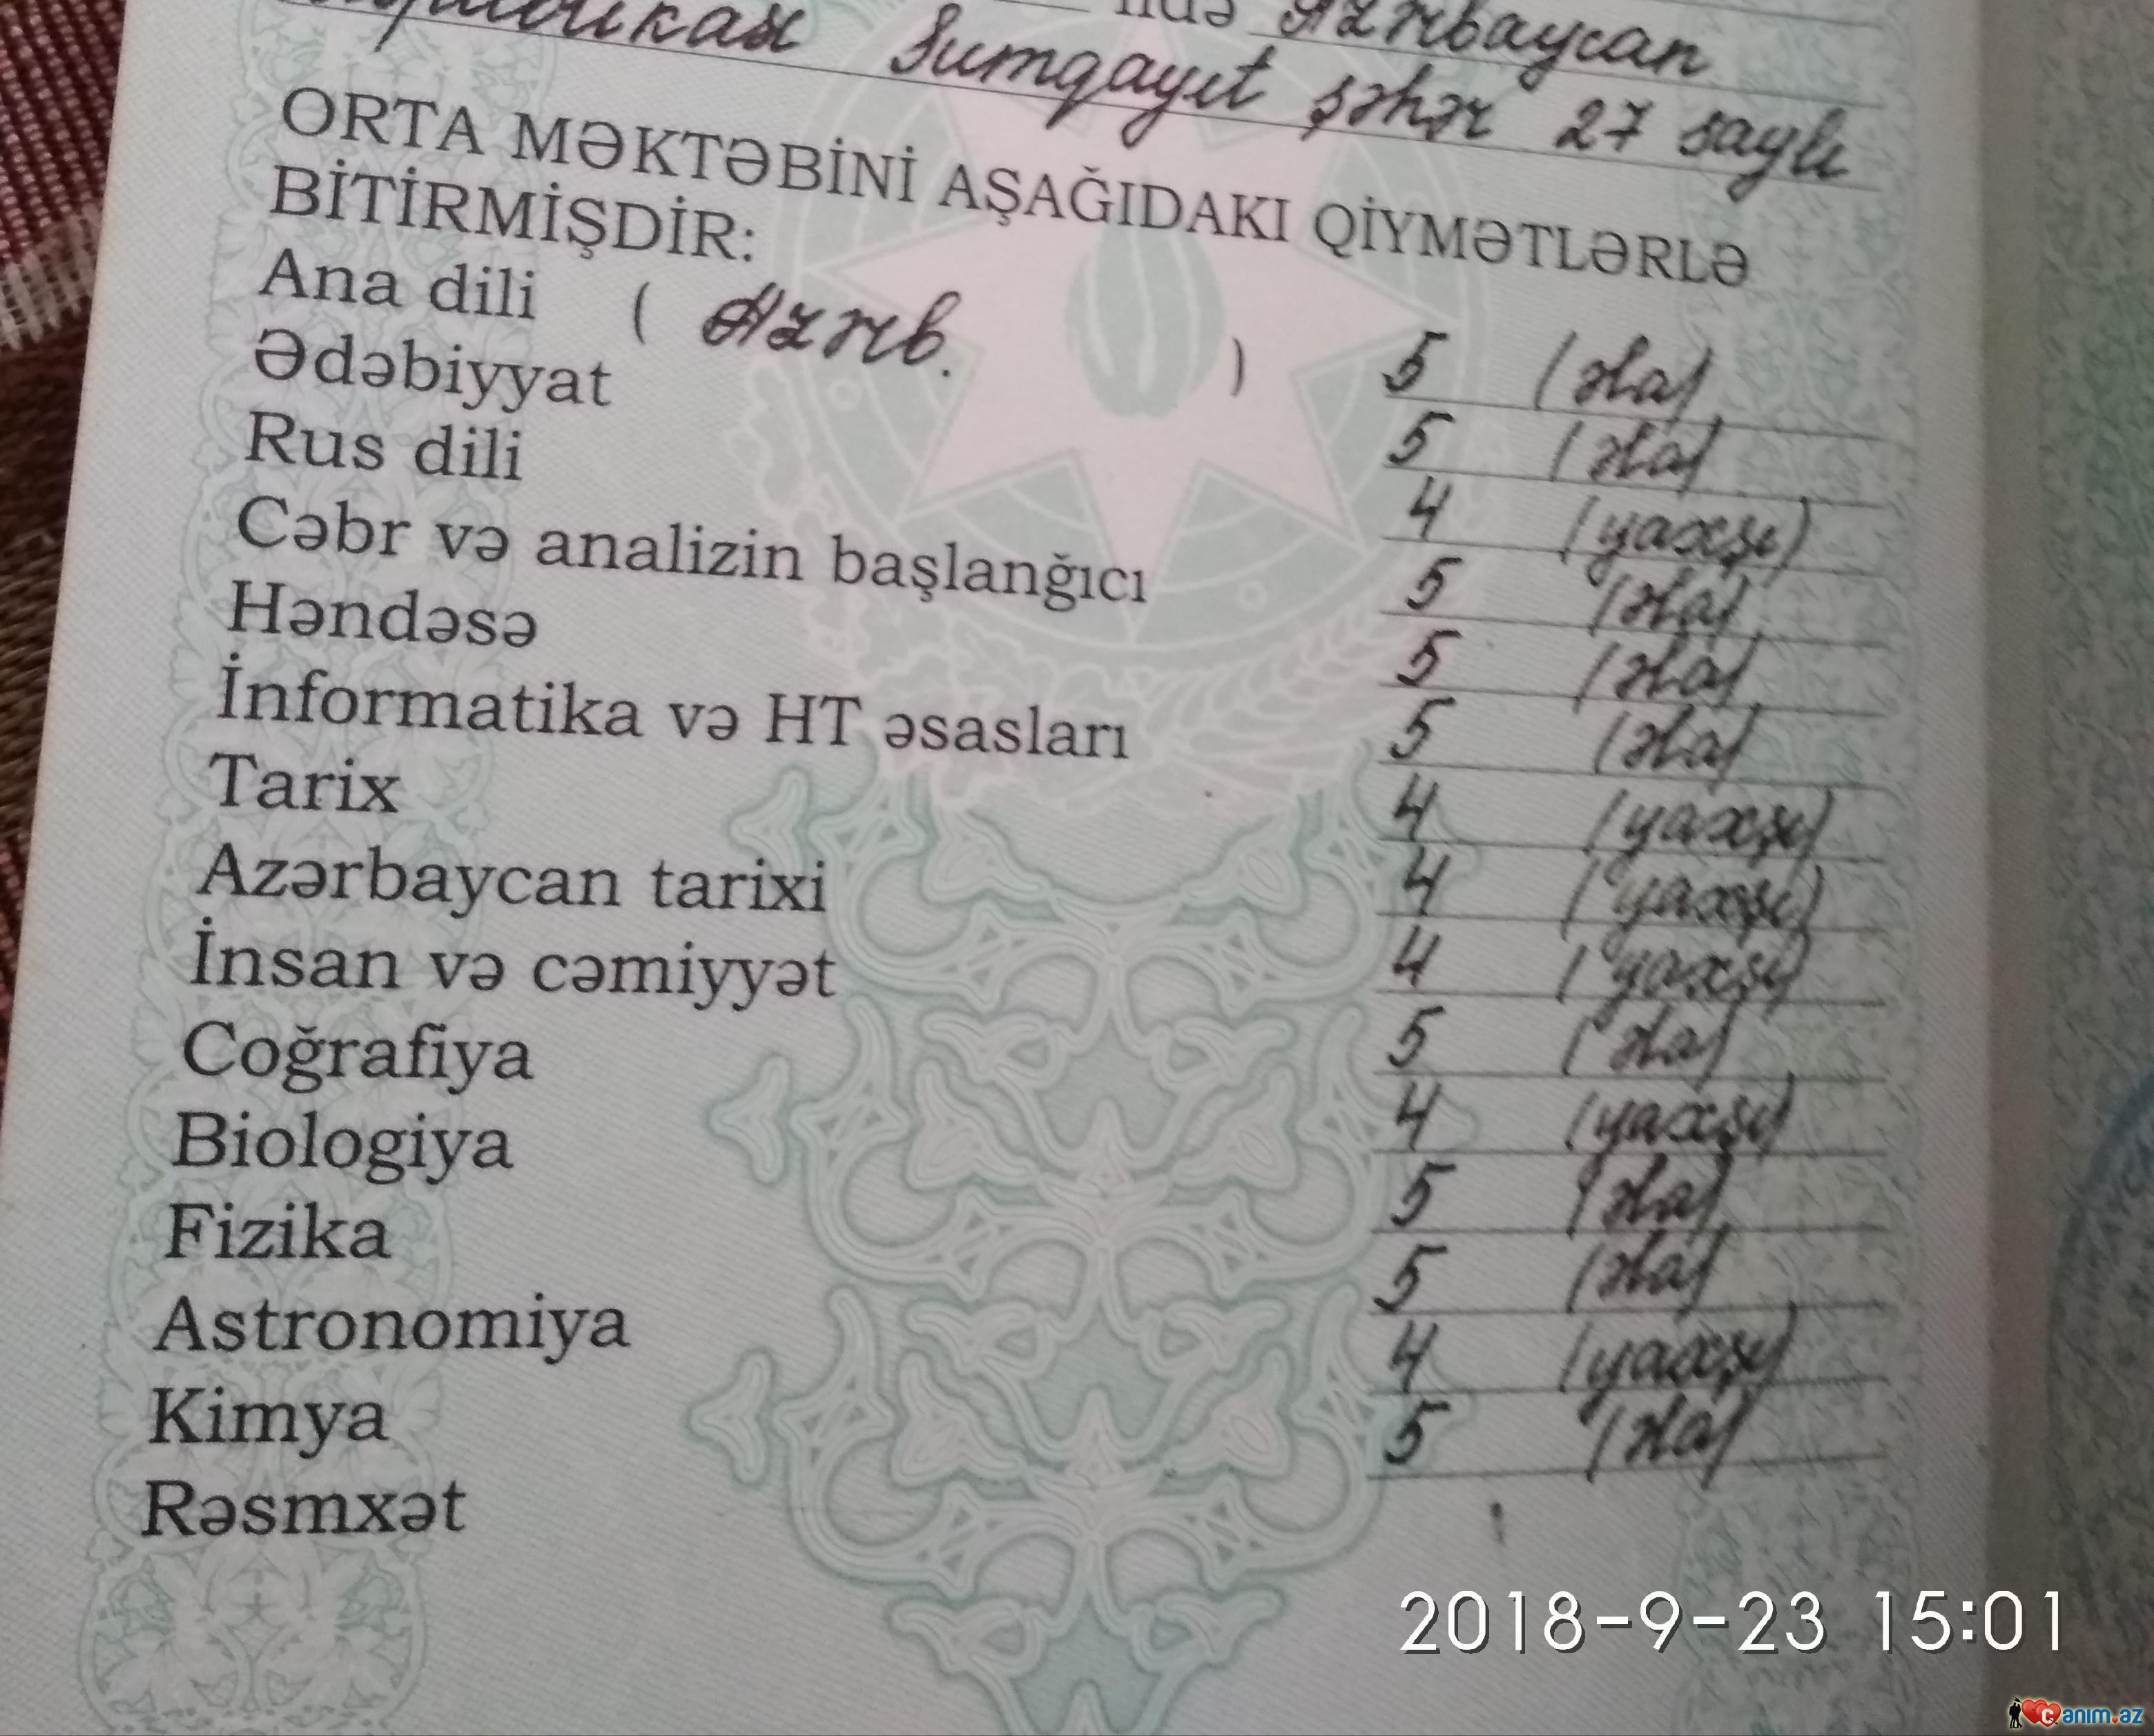 Azərbaycan
Sumqayıt şəhər 27 saylı
ORTA MƏKTƏBİNİ AŞAĞIDAKI QİYMƏTLƏRLƏ
BİTİRMİŞDİR:
Ana dili ( Azərb. ) 5 (əla)
Ədəbiyyat 5 (əla)
Rus dili 4 (yaxşı)
Cəbr və analizin başlanğıcı 5 (əla)
Həndəsə 5 (əla)
İnformatika və HT əsasları 5 (əla)
Tarix 4 (yaxşı)
Azərbaycan tarixi 4 (yaxşı)
İnsan və cəmiyyət 4 (yaxşı)
Coğrafiya 5 (əla)
Biologiya 4 (yaxşı)
Fizika 5 (əla)
Astronomiya 5 (əla)
Kimya 4 (yaxşı)
Rəsmxət 5 (əla)
2018-9-23 15:01
canim.az